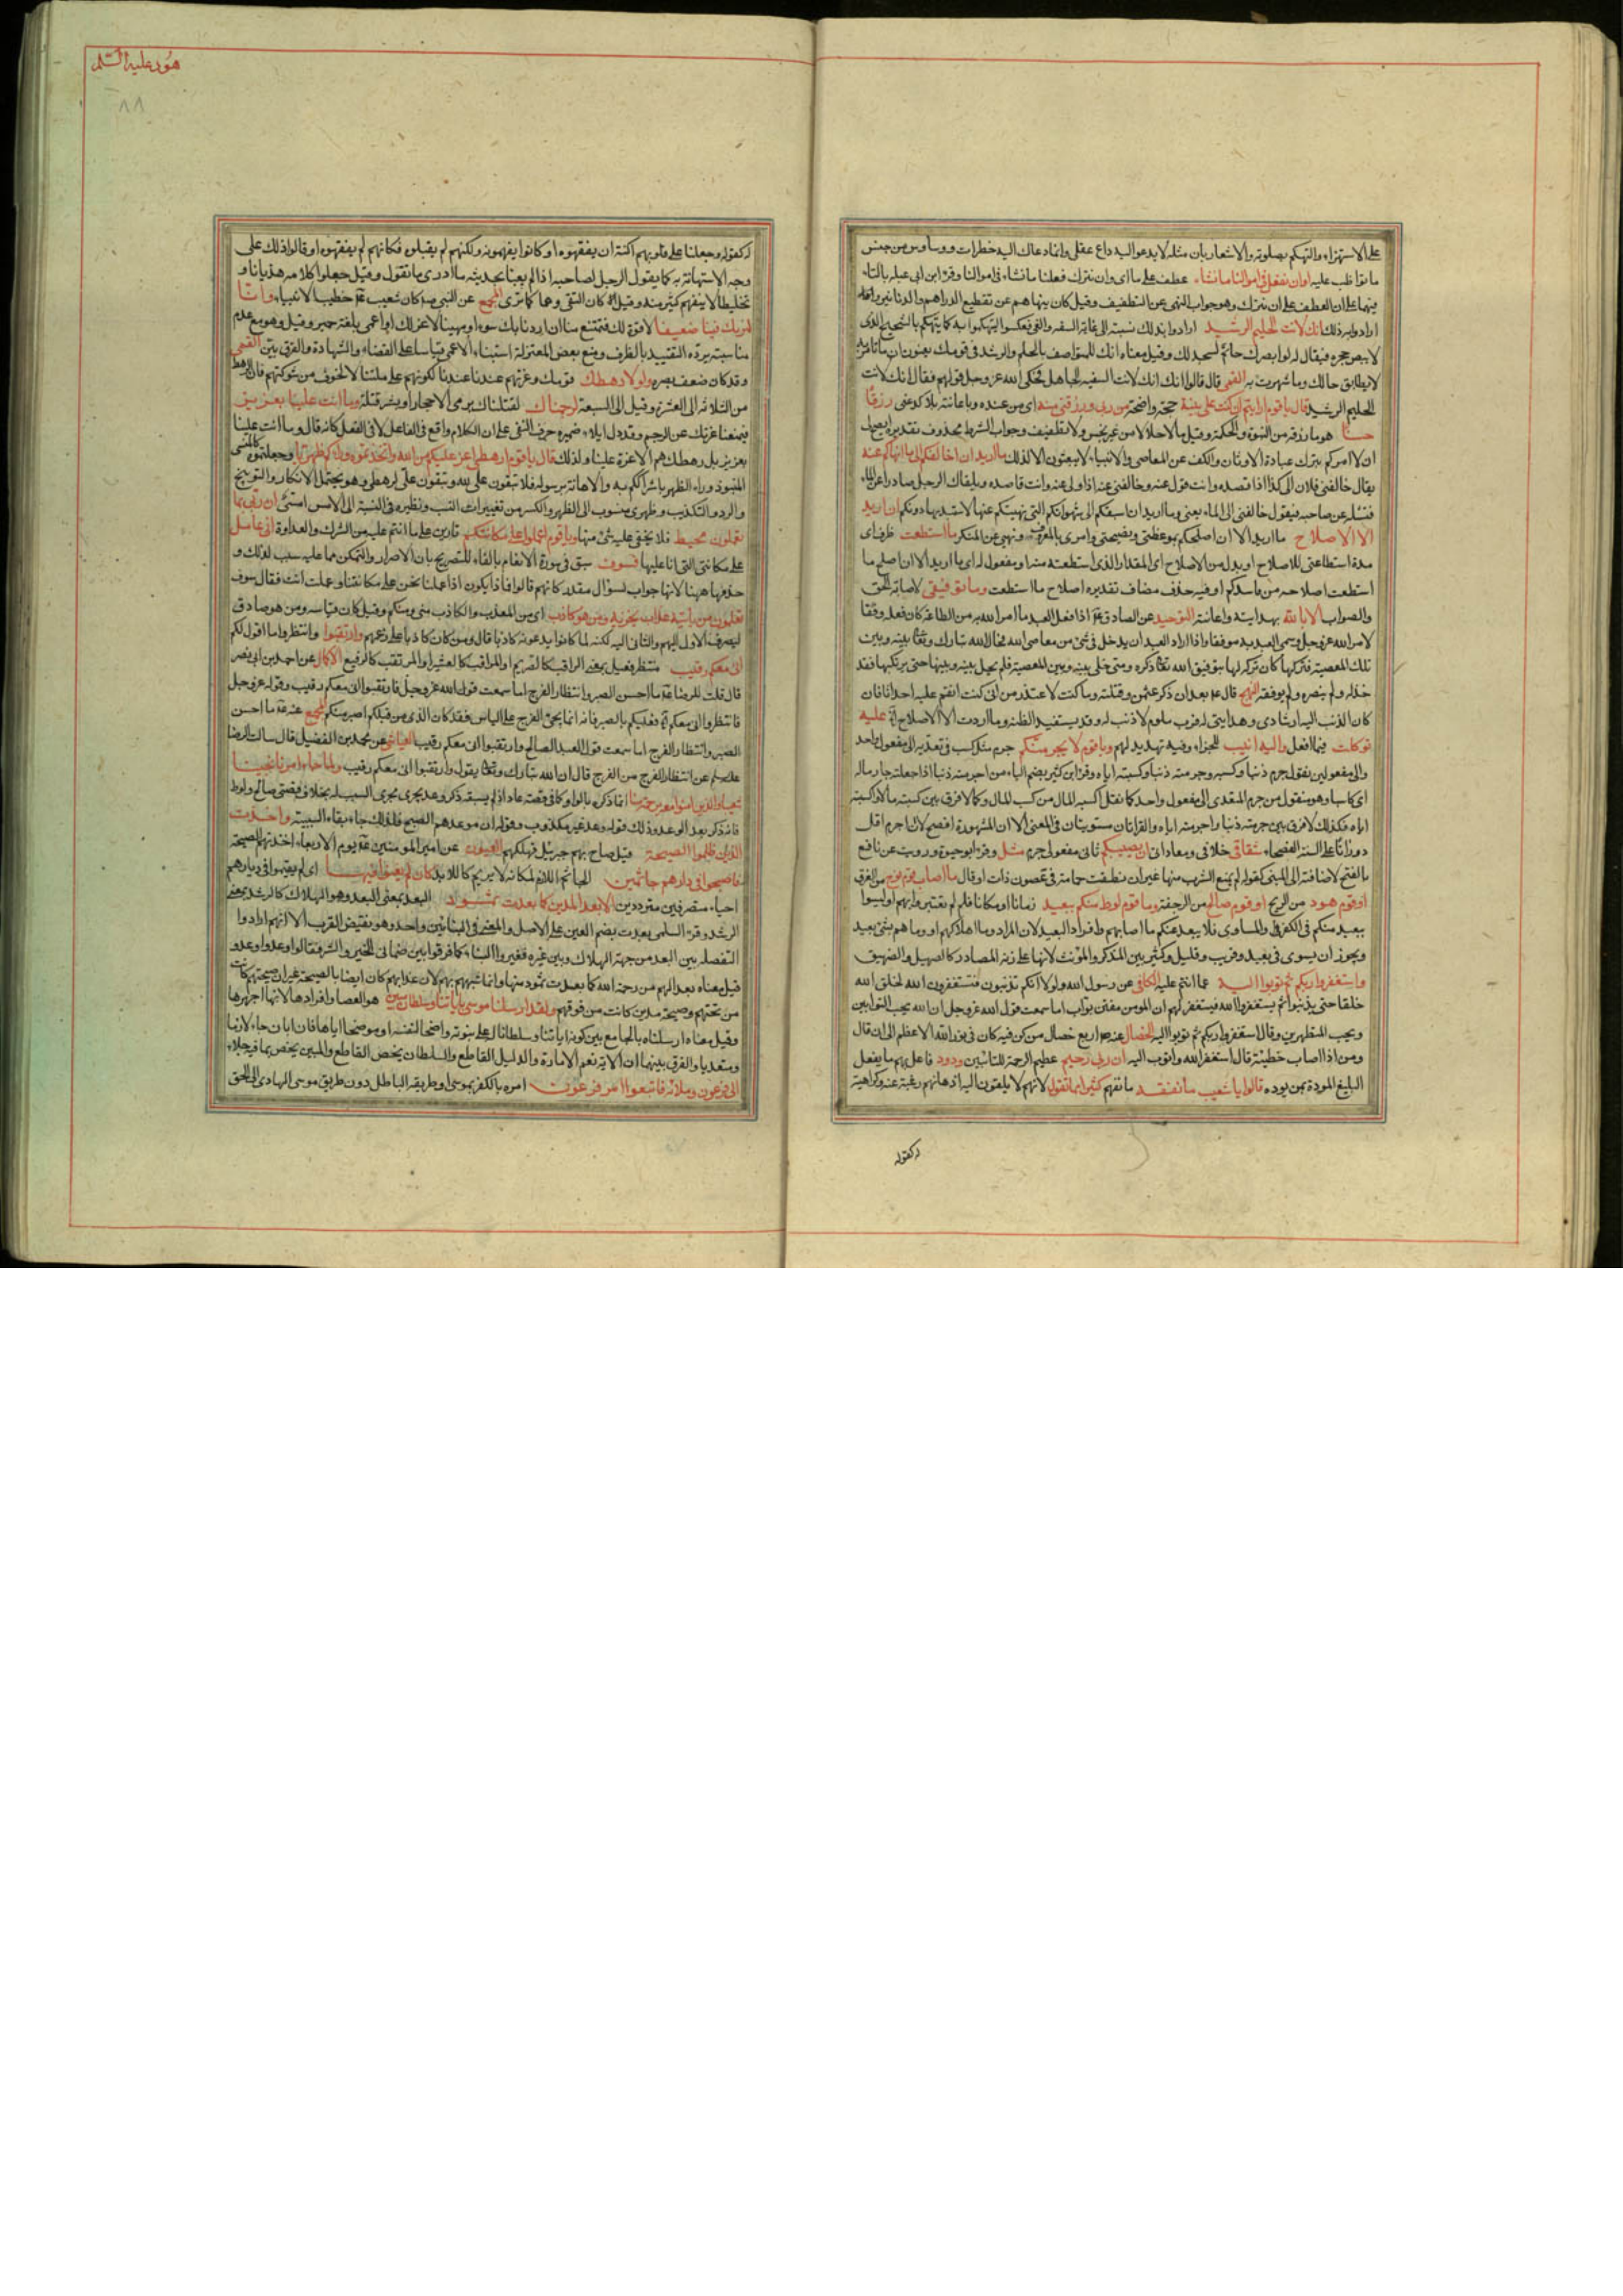 على الاستهزاء والتهكم بصلوته والاشعار بان مثله لا يدعو اليه داع عقلى وانما دعاك اليه خطرات ووساوس من جنس
ما تواظب عليه او ان نفعل فى اموالنا ما نشاء عطف على ما اى وان نترك فعلنا ما نشاء فى اموالنا وقرء ابن ابى عبله بالتاء
فيهما على ان العطف على ان نترك وهو جواب النهى عن التطفيف وقيل كان ينهاهم عن تقطيع الدراهم والدنانير
ارادوا به ذلك انك لانت الحليم الرشيد ارادوا بذلك نسبته الى غاية السفه والغى فعكسوا ليتهكموا به كما يتهكم بالشحيح الذى
لا يبض حجره فيقال له لو ابصرك حاتم لسجد لك وقيل معناه انك للمتواصف بالحلم والرشد فى قومك يعنون ان ما تامر به
لا يطابق حالك وما شهرت به القمى قال قالوا انك انك لانت السفيه الجاهل فحكى الله عز وجل قولهم فقال انك لانت
الحليم الرشيد قال يا قوم ارايتم ان كنت على بينة حجة واضحة من ربى ورزقنى منه اى من عنده وباعانته بلا كد منى رزقا
حسنا هو ما رزقه من النبوة والحكمة وقيل مالا حلالا من غير بخس ولا تطفيف وجواب الشرط محذوف تقديره ايصح لى
ان لا امركم بترك عبادة الاوثان والكف عن المعاصى والانبياء لا يبعثون الا لذلك وما اريد ان اخالفكم الى ما انهاكم عنه
يقال خالفنى فلان الى كذا اذا قصده وانت مول عنه وخالفنى عنه اذا ولى عنه وانت قاصده ويلقاك الرجل صادرا عن الماء
فتسئله عن صاحبه فيقول خالفنى الى الماء يعنى وما اريد ان اسبقكم الى شهواتكم التى نهيتكم عنها لاستبد بها دونكم ان اريد
الا الاصلاح ما اريد الا ان اصلحكم بموعظتى ونصيحتى وامرى بالمعروف ونهيى عن المنكر ما استطعت ظرف اى
مدة استطاعتى للاصلاح او بدل من الاصلاح اى المقدار الذى استطعته منه او مفعول له اى ما اريد الا ان اصلح ما
استطعت اصلاحه من فاسدكم او فيه حذف مضاف تقديره اصلاح ما استطعت وما توفيقى لاصابة الحق
والصواب الا بالله بهدايته واعانته التوحيد عن الصادق ع اذا فعل العبد ما امر الله به من الطاعة كان فعله وفقا
لامر الله عز وجل وسمى العبد به موفقا واذا اراد العبد ان يدخل فى شئ من معاصى الله فحال الله تبارك وتعالى بينه وبين
تلك المعصية فتركها كان تركه لها بتوفيق الله تعالى ذكره ومتى خلى بينه وبين المعصية فلم يحل بينه وبينها حتى يرتكبها فقد
خذله ولم ينصره ولم يوفقه النهج قال ع بعد ان ذكر عثمن وقتلته وما كنت لاعتذر من انى كنت انقم عليه احداثا فان
كان الذنب اليه ارشادى وهدايتى له فرب ملوم لا ذنب له وقد يستفيد الظنة وما اردت الا الاصلاح عليه
توكلت فيما افعل واليه انيب للجزاء وفيه تهديد لهم ويا قوم لا يجرمنكم جرم مثل كسب فى تعديه الى مفعول واحد
والى مفعولين يقول جرم ذنبا وكسبه وجرمته ذنبا وكسبته اياه وقرء ابن كثير بضم الياء من اجرمته ذنبا اذا جعلته جارما له
اى كاسبا وهو منقول من جرم المتعدى الى مفعول واحد كما نقل اكسبه المال من كسب المال وكما لا فرق بين كسبته مالا واكسبته
اياه فكذلك لا فرق بين جرمته ذنبا واجرمته اياه والقراءتان مستويتان فى المعنى الا ان المشهورة افصح لان اجرم اقل
دورانا على السنة الفصحاء شقاقى خلافى ومعاداتى ان يصيبكم ثانى مفعولى جرم مثل وقرء ابو حيوة ورويت عن نافع
بالفتح لاضافته الى المبنى كقوله لم يمنع الشرب منها غير ان نطقت حمامة فى غصون ذات اوقال ما اصاب قوم نوح من الغرق
او قوم هود من الريح او قوم صالح من الرجفة وما قوم لوط منكم ببعيد زمانا او مكانا فان لم تعتبروا بهم او ليسوا
ببعيد منكم فى الكفر والمساوى فلا يبعد عنكم ما اصابهم وافراد البعيد لان المراد وما اهلاكهم او وما هم بشئ بعيد
ويجوز ان يسوى فى بعيد وقريب وقليل وكثير بين المذكر والمؤنث لانها على زنة المصادر كالصهيل والشهيق
واستغفروا ربكم ثم توبوا اليه عما انتم عليه الكافى عن رسول الله ولولا انكم تذنبون فتستغفرون الله لخلق الله
خلقا حتى يذنبوا ثم يستغفروا الله فيستغفر لهم ان المومن مفتن تواب اما سمعت قول الله عز وجل ان الله يحب التوابين
ويحب المتطهرين وقال استغفروا ربكم ثم توبوا اليه الخصال عنه ص اربع خصال من كن فيه كان فى نور الله الاعظم الى ان قال
ومن اذا اصاب خطيئة قال استغفر الله واتوب اليه ان ربى رحيم عظيم الرحمة للتائبين ودود فاعل بهم ما يفعل
البليغ المودة بمن يوده قالوا يا شعيب ما نفقه ما نفهم كثيرا مما تقول لانهم لا يلقون اليه اذهانهم رغبة عنه وكراهية
له كقوله
هود عليه السلم
٨٨
له كقوله وجعلنا على قلوبهم اكنة ان يفقهوه او كانوا يفهمونه ولكنهم لم يقبلوه فكانهم لم يفقهوه او قالوا ذلك على
وجه الاستهانة به كما يقول الرجل لصاحبه اذا لم يعبأ بحديثه ما ادرى ما تقول وقيل جعلوا كلامه هذيانا و
تخليطا لا ينفهم كثير منه وقيل كان الثقى وها كما ترى المجمع عن النبى ص كان شعيب ع خطيب الانبياء وانا
لنريك فينا ضعيفا لا قوة لك فتمتنع منا ان اردنا بك سوءا او مهينا لا عز لك او اعمى بلغة حمير وقيل وهو مع عدم
مناسبته يرده التقييد بالظرف ومنع بعض المعتزلة استنباء الاعمى قياسا على القضاء والشهادة والفرق بين القمى
وقد كان ضعف بصره ولولا رهطك قومك وعزتهم عندنا لكونهم على ملتنا لا لخوف من شوكتهم فان الرهط
من الثلاثة الى العشرة وقيل الى السبعة لرجمناك لقتلناك برمى الاحجار او بشر قتلة وما انت علينا بعزيز
فيمنعنا عزتك عن الرجم وقد دل ايلاء ضميره حرف النفى على ان الكلام واقع فى الفاعل لا فى الفعل كانه قال وما انت علينا
بعزيز بل رهطك هم الاعزة علينا ولذلك قال يا قوم ارهطى اعز عليكم من الله واتخذتموه وراءكم ظهريا وجعلتموه كالمنسى
المنبوذ وراء الظهر باشراككم به والاهانة برسوله فلا تبقون على لله وتبقون على لرهطى وهو يحتمل الانكار والتوبيخ
والرد والتكذيب وظهرى منسوب الى الظهر والكسر من تغييرات النسب ونظيره فى النسبة الى الامس امسى ان ربى بما
تعملون محيط فلا يخفى عليه شئ منها ويا قوم اعملوا على مكانتكم قارين على ما انتم عليه من الشرك والعداوة انى عامل
على مكانتى التى انا عليها فسوف سبق فى سورة الانعام بالفاء للتصريح بان الاصرار والتمكن مما عليه سبب لذلك و
حذفها ههنا لانها جواب لسؤال مقدر كانهم قالوا فماذا يكون اذا عملنا نحن على مكانتنا وعملت انت فقال سوف
تعلمون من يأتيه عذاب يخزيه ومن هو كاذب اى من المعذب والكاذب منى ومنكم وقيل كان قياسه ومن هو صادق
لينصرف الاول اليهم والثانى اليه لكنه لما كانوا يدعونه كاذبا قال ومن كان كاذبا على زعمهم وارتقبوا وانتظروا ما اقول لكم
انى معكم رقيب منتظر فعيل بمعنى الراقب كالصريم او المراقب كالعشير او المرتقب كالرفيع الاكمال عن احمد بن ابى نصر
قال قلت للرضا ع ما احسن الصبر وانتظار الفرج اما سمعت قول الله عز وجل فارتقبوا انى معكم رقيب وقوله عز وجل
فانتظروا انى معكم فعليكم بالصبر فانه انما يجئ الفرج على الياس فقد كان الذى من قبلكم اصبر منكم المجمع عنه ع ما احسن
الصبر وانتظار الفرج اما سمعت قول العبد الصالح وارتقبوا انى معكم رقيب العياشى عن محمد بن الفضيل قال سالت الرضا
عن انتظار الفرج من الفرج قال ان الله تبارك وتعالى يقول وارتقبوا انى معكم رقيب ولما جاء امرنا نجينا
شعيبا والذين امنوا معه برحمة منا انما ذكره بالواو كما فى قصة عاد اذ لم يسبقه ذكر وعد يجرى مجرى السبب له بخلاف قصتى صالح ولوط
فانه ذكر بعد الوعد وذلك قوله وعد غير مكذوب وقوله ان موعدهم الصبح فلذلك جاء بفاء السببية واخذت
الذين ظلموا الصيحة قيل صاح بهم جبرئيل فهلكهم العيون عن امير المومنين ع يوم الاربعاء اخذتهم الصيحة
فاصبحوا فى دارهم جاثمين الجاثم اللازم لمكانه لا يريم كاللابد كان لم يغنوا فيها اى لم يقيموا فى ديارهم
احياء متصرفين مترددين الا بعدا لمدين كما بعدت ثمود البعد بمعنى البعد وهو الهلاك كالرشد بمعنى
الرشد وقرء السلمى بعدت بضم العين على الاصل والمعنى فى البنائين واحد وهو نقيض القرب الا انهم ارادوا
التفصلة بين البعد من جهة الهلاك وبين غيره فغيروا البناء كما فرقوا بين ضمانى الخير والشر فقالوا وعد واوعد و
قيل معناه بعدا لهم من رحمة الله كما بعدت ثمود منها وانما شبههم بهم لان عذابهم كان ايضا بالصيحة غير ان صيحتهم كانت
من تحتهم وصيحة مدين كانت من فوقهم ولقد ارسلنا موسى باياتنا وسلطان مبين هو العصا وافرادها لانها ابهرها
وقيل معناه ارسلناه بالجامع بين كونه اياتنا وسلطانا له على نبوته واضحا لنفسه او موضحا اياها فان ابان جاء لازما
ومتعديا والفرق بينهما ان الاية تعم الامارة والدليل القاطع والسلطان يخص القاطع والمبين يخص بما فيه جلاء
الى فرعون وملائه فاتبعوا امر فرعون امره بالكفر بموسى او طريقه الباطل دون طريق موسى الهادى الى الحق